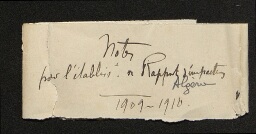 Notes
pour l'établis^t. Rapport d'inspection
Algérie
1909-1910.